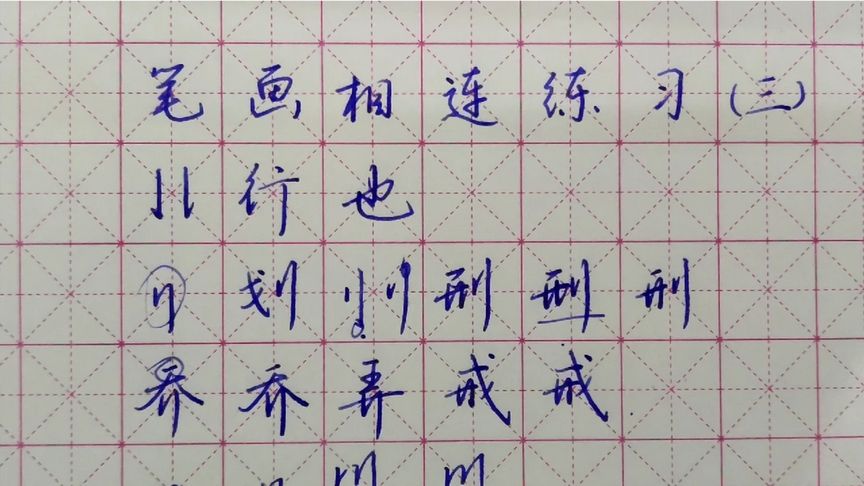 笔画相连练习(三)
行也
刂划刂刑刑刑
界乔弄戒戒